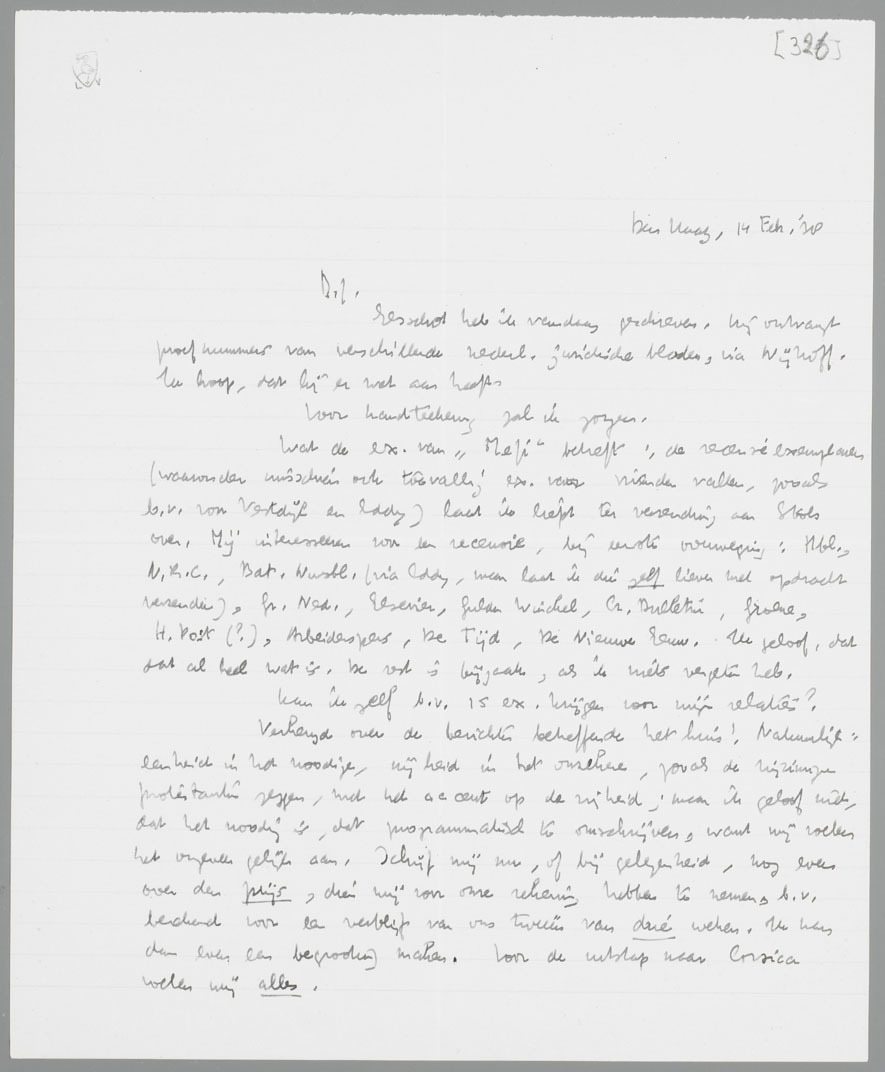 [326]
Den Haag, 14 Febr. '38
B.J.
Elsschot heb ik vandaag geschreven. Hij ontvangt
proefnummers van verschillende nederl. juridische bladen, via Nijhoff.
Ik hoop, dat hij er wat aan heeft.
Voor handteekening zal ik zorgen.
Wat de ex. van „Mefi" betreft: de recensieexemplaren
(waaronder misschien ook toevallig ex. voor vrienden vallen, zooals
b.v. voor Vestdijk en Eddy) laat ik liefst ter verzending aan Stols
over. Mij interesseeren voor een recensie, bij eerste overweging: Hbl.,
N.R.C., Bat. Nwsbl. (via Eddy, maar laat ik die zelf liever met opdracht
verzenden), Gr. Ned., Elsevier, Gulden Winckel, Cr. Bulletin, Groene,
H. Post (?), Arbeiderspers, De Tijd, De Nieuwe Eeuw. Ik geloof, dat
dat al heel wat is. De rest is bijzaak, als ik niets vergeten heb.
Kan ik zelf b.v. 15 ex. krijgen voor mijn relaties?
Verheugd over de berichten betreffende het huis! Natuurlijk:
eenheid in het noodige, vrijheid in het onzekere, zooals de vrijzinnige
protestanten zeggen, met het accent op de vrijheid; maar ik geloof niet,
dat het noodig is, dat programmatisch te omschrijven, want wij voelen
het ongeveer gelijk aan. Schrijf mij nu, of bij gelegenheid, nog even
over den prijs, dien wij voor onze rekening hebben te nemen, b.v.
berekend voor een verblijf van ons tweeën van drie weken. Ik kan
dan even een begrooting maken. Voor de uitstap naar Corsica
voelen wij alles.